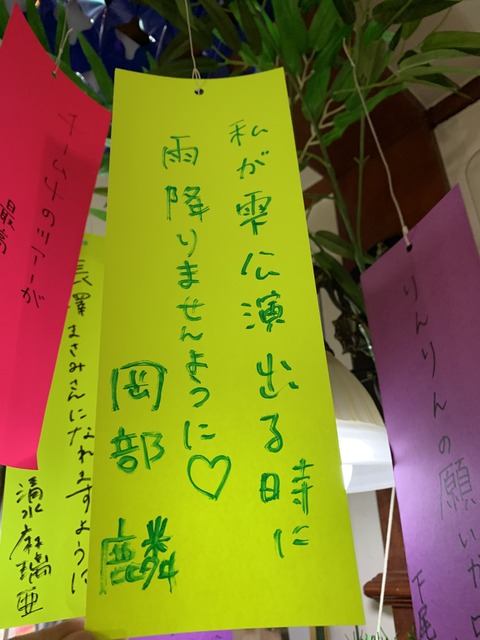 私が雫公演出る時に
雨降りませんように♡
岡部 麟
チーム4のツアーが
最高
長澤まさみさんになれますように
清水麻璃亜
りんりんの願いが
下尾